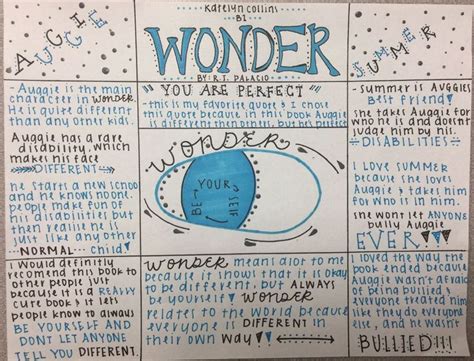 Katelyn Collins
B1
WONDER
BY: R.J. PALACIO
AUGGIE
SUMMER
- Auggie is the main
character in WONDER.
He is quite different
than any other kids.
Auggie has a rare
disability, which
makes his face
DIFFERENT
he starts a new school
and he knows noone.
people make fun of
his disabilities but
then realise he is
just like any other
NORMAL child
I would definitly
recomend this book to
other people just
because it is a REALLY
cute book & it lets
people know to always
BE YOURSELF AND
DONT LET ANYONE
TELL YOU DIFFERENT.
"YOU ARE PERFECT"
-this is my favorite quote & I chose
this quote because in this book Auggie
is different then others, but he's perfect
WONDER
BE YOUR SELF
WONDER means alot to me
because it shows that it is okay
to be different, but ALWAYS
be yourself WONDER
relates to the world because
everyone is DIFFERENT in
their own WAY
- summer is AUGGIES
Best friend
she takes Auggie for
who he is and doesn't
judge him by his
DISABILITIES
I love SUMMER
because she loves
Auggie & takes him
for who he is in
she wont let ANYONE
bully Auggie
EVER!!!
I loved the way the
book ended because
Auggie wasn't afraid
of being bullied &
everyone treated him
like they do everyone
else, and he wasn't
BULLIED!!!